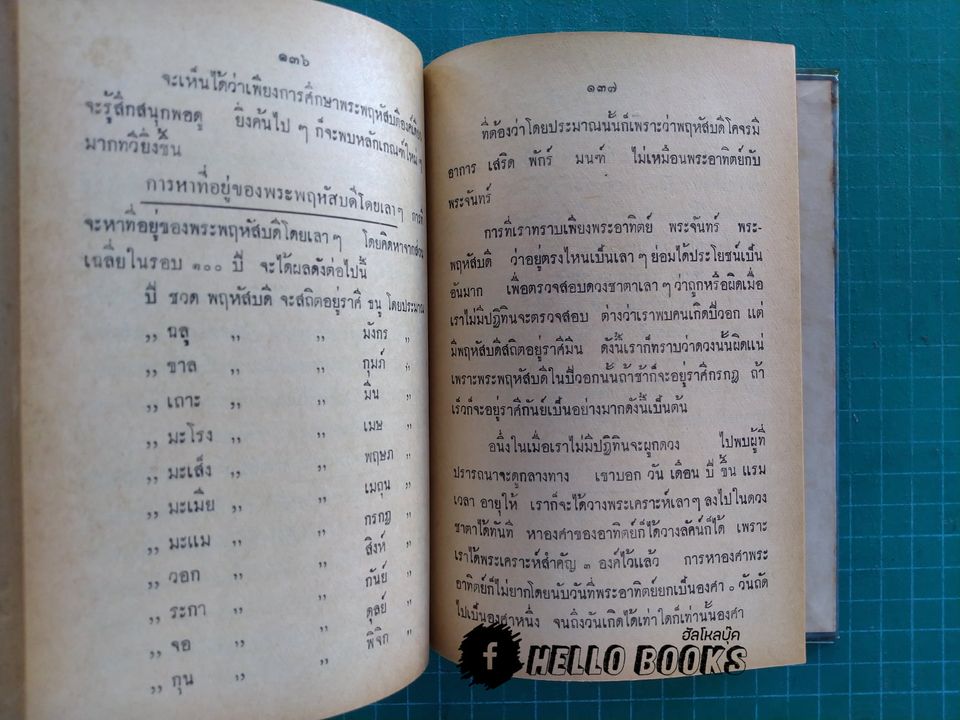 ๑๓๖
จะเห็นได้ว่าเพียงการศึกษาพระพฤหัสบดีองค์เดียว
จะรู้สึกสนุกพอดู ยิ่งค้นไป ๆ ก็จะพบหลักเกณฑ์ใหม่ ๆ
มากทวียิ่งขึ้น
การหาที่อยู่ของพระพฤหัสบดีโดยเลา ๆ การที่
จะหาที่อยู่ของพระพฤหัสบดีโดยเลา ๆ โดยคิดหาจากส่วน
เฉลี่ยในรอบ ๑๐๐ ปี จะได้ผลดังต่อไปนี้
ปี ชวด พฤหัสบดี จะสถิตอยู่ราศี ธนู โดยประมาณ
,, ฉลู ,, ,, มังกร ,,
,, ขาล ,, ,, กุมภ์ ,,
,, เถาะ ,, ,, มีน ,,
,, มะโรง ,, ,, เมษ ,,
,, มะเส็ง ,, ,, พฤษภ ,,
,, มะเมีย ,, ,, เมถุน ,,
,, มะแม ,, ,, กรกฎ ,,
,, วอก ,, ,, สิงห์ ,,
,, ระกา ,, ,, กันย์ ,,
,, จอ ,, ,, ตุลย์ ,,
,, กุน ,, ,, พิจิก ,,
๑๓๗
ที่ต้องว่าโดยประมาณนั้นก็เพราะว่าพฤหัสบดีโคจรมี
อาการ เสริด พักร์ มนฑ์ ไม่เหมือนพระอาทิตย์กับ
พระจันทร์
การที่เราทราบเพียงพระอาทิตย์ พระจันทร์ พระ-
พฤหัสบดี ว่าอยู่ตรงไหนเป็นเลา ๆ ย่อมได้ประโยชน์เป็น
อันมาก เพื่อตรวจสอบดวงชาตาเลา ๆ ว่าถูกหรือผิดเมื่อ
เราไม่มีปฏิทินจะตรวจสอบ ต่างว่าเราพบคนเกิดปีวอก แต่
มีพฤหัสบดีสถิตอยู่ราศีมีน ดังนี้เราก็ทราบว่าดวงนั้นผิดแน่
เพราะพระพฤหัสบดีในปีวอกนั้นถ้าช้าก็จะอยู่ราศีกรกฎ ถ้า
เร็วก็จะอยู่ราศีกันย์เป็นอย่างมากดังนี้เป็นต้น
อนึ่งในเมื่อเราไม่มีปฏิทินจะผูกดวง ไปพบผู้ที่
ปรารถนาจะดูกลางทาง เขาบอก วัน เดือน ปี ขึ้น แรม
เวลา อายุให้ เราก็จะได้วางพระเคราะห์เลา ๆ ลงไปในดวง
ชาตาได้ทันที หาองศาของอาทิตย์ก็ได้วางลัคน์ก็ได้ เพราะ
เราได้พระเคราะห์สำคัญ ๓ องค์ไว้แล้ว การหาองศาพระ
อาทิตย์ก็ไม่ยากโดยนับวันที่พระอาทิตย์ยกเป็นองศา ๐ วันถัด
ไปเป็นองศาหนึ่ง จนถึงวันเกิดได้เท่าใดก็เท่านั้นองศา
ฮัลโหลบุ๊ค
f HELLO BOOKS